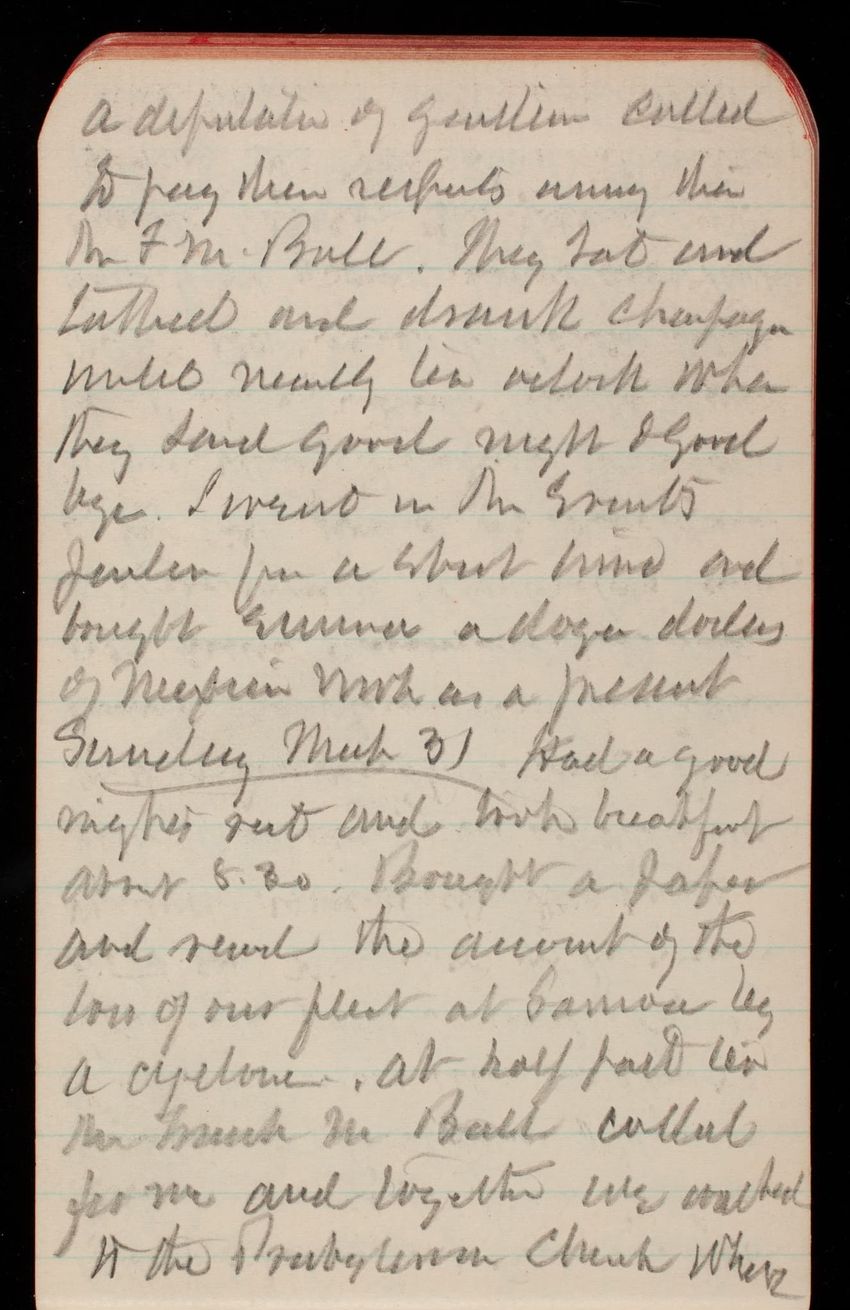 a deputation of gentlemen called
to pay their respects among them
Mr F M. Ball. They sat and
talked and drank champagne
until nearly ten oclock when
they said good night & good
bye. I went in Mr
for a short time and
bought Emma a dozen doilies
of Mexican work as a present
Sunday March 31 Had a good
nights rest and took breakfast
about 8.30. Bought a paper
and read the account of the
loss of our fleet at Samoa by
a cyclone. At half past ten
Mr Ball called
for me and together we walked
to the Presbyterian Church where